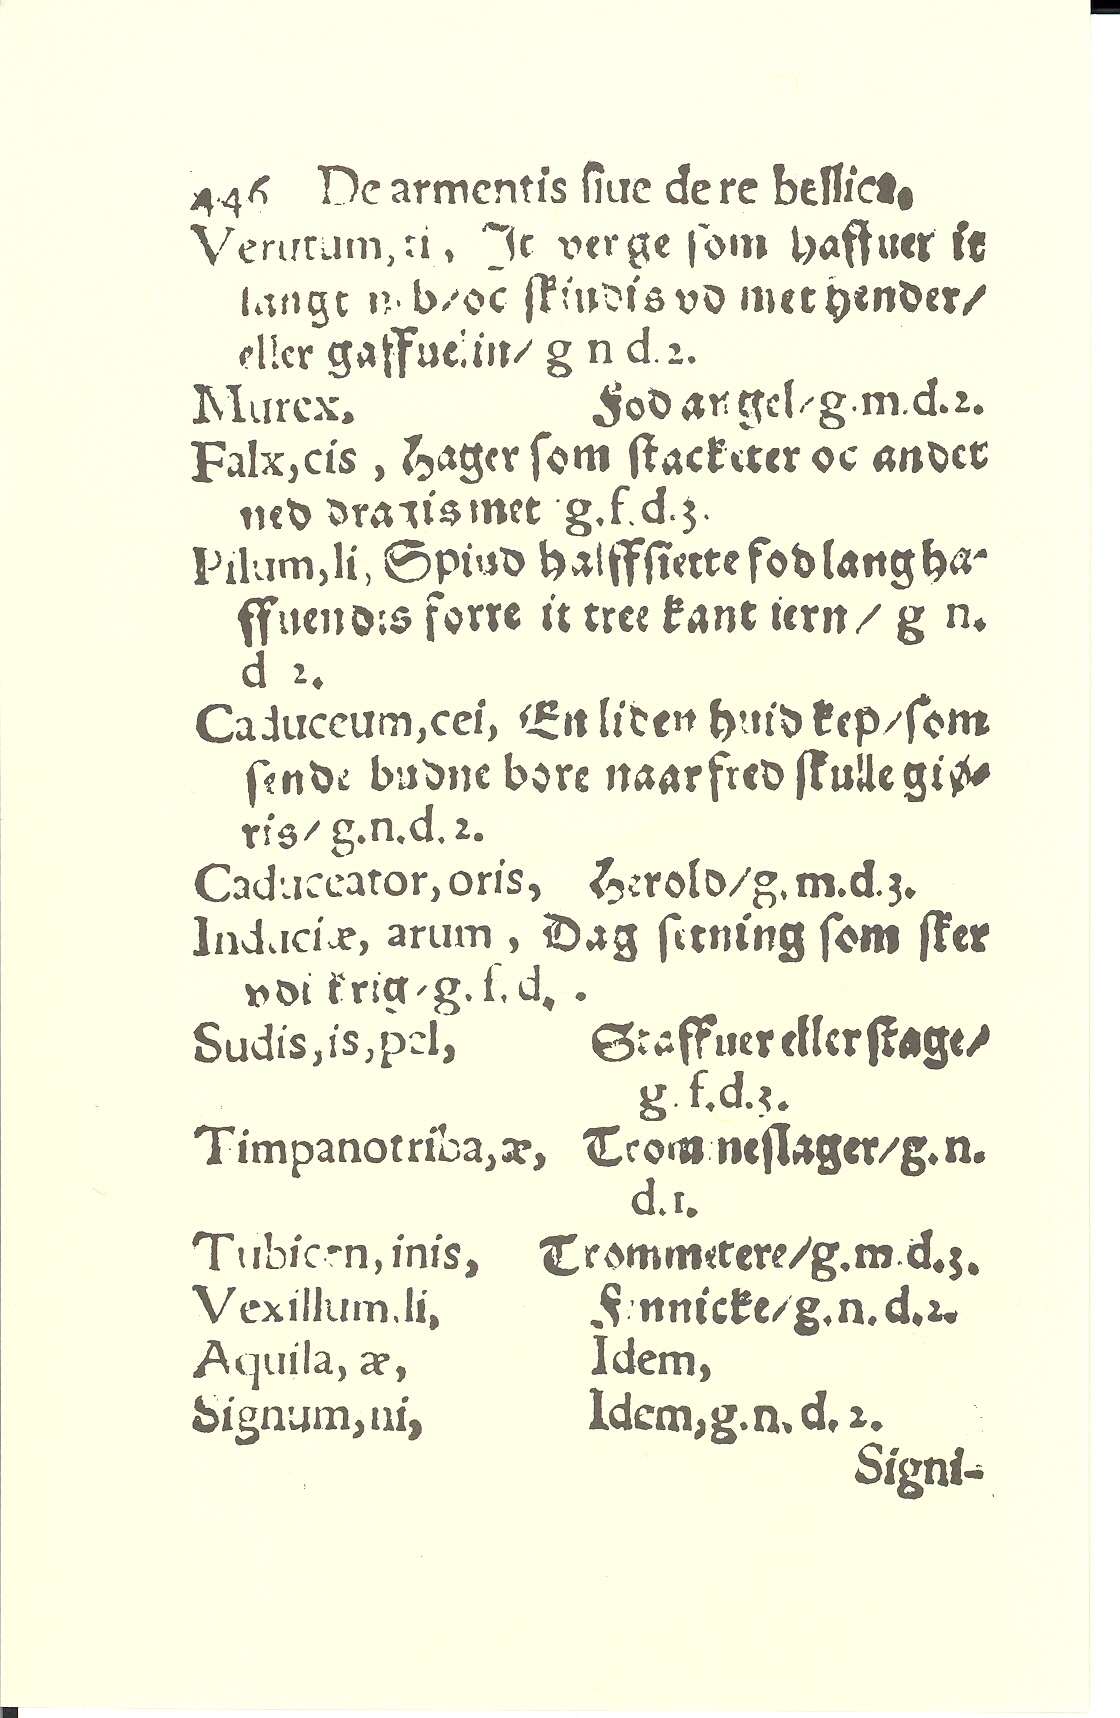 446 De armentis ſiue de re bellica.
Verutum, ti, It verge ſom haffuer it
langt neb/oc ſkiudis vd met hender/
eller gaffuelin/ g n d. 2.
Murex, Fod angel/g.m.d.2.
Falx,cis , Hager ſom ſtacketer oc andet
ned dragis met g.f.d.3.
Pilum,li, Spiud halffſiette fod lang ha-
ffuendis forre it tree kant iern/ g n.
d 2.
Caduceum,cei, En liden huid kep/ſom
ſende budne bore naar fred ſkulle giø-
ris/ g.n.d.2.
Caduceator,oris, Herold/g.m.d.3.
Induciæ, arum , Dag ſetning ſom ſker
vdi krig/g.f.d. .
Sudis,is,pel, Staffuer eller ſtage/
g.f.d.3.
Timpanotriba,æ, Trommeſlager/g.n.
d.1.
Tubicen,inis, Trommetere/g.m.d.3.
Vexillum.li, Fennicke/g.n.d.2.
Aquila, æ, Idem,
Signum,ni, Idem,g.n.d.2.
Signi-